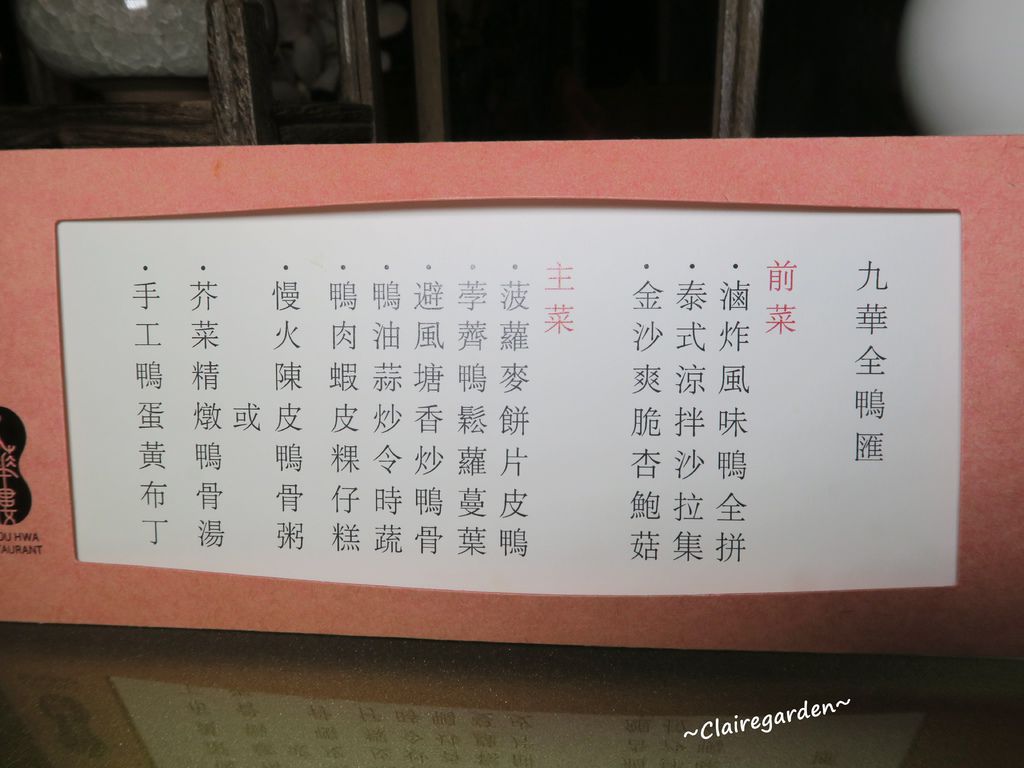 九華全鴨匯
前菜
・滷炸風味鴨全拼
・泰式涼拌沙拉集
・金沙爽脆杏鮑菇
主菜
・菠蘿麥餅片皮鴨
・荸薺鴨鬆蘿蔓葉
・避風塘香炒鴨骨
・鴨油蒜炒令時蔬
・鴨肉蝦皮粿仔糕
・慢火陳皮鴨骨粥
或
・芥菜精燉鴨骨湯
・手工鴨蛋黃布丁
OU HWA
AURANT
~Clairegarden~